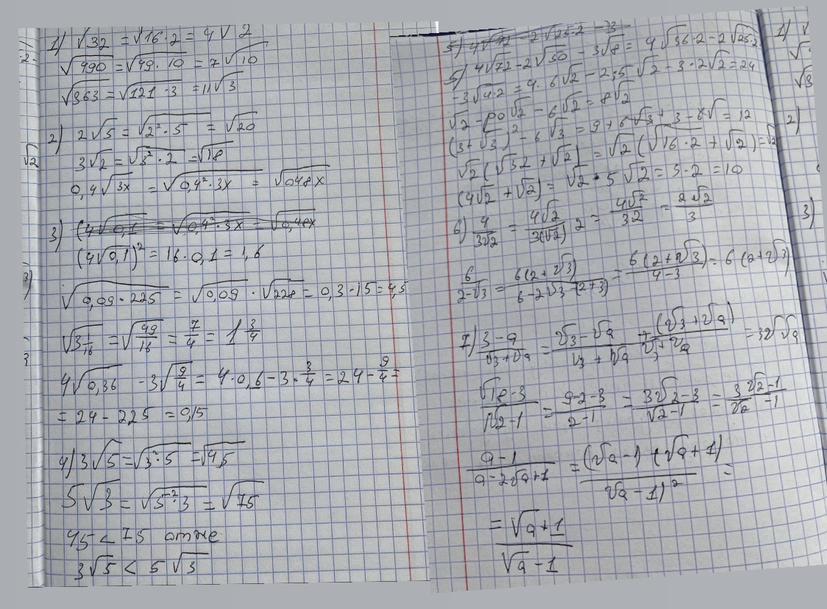 1) √32 = √16·2 = 4√2
√490 = √49·10 = 7√10
√363 = √121·3 = 11√3
2) 2√5 = √2²·5 = √20
3√2 = √3²·2 = √18
0,4√3x = √0,4²·3x = √0,48x
3) (4√0,1 = √0,4²·3x = √0,48x
(4√0,1)² = 16·0,1 = 1,6
√0,09·225 = √0,09 · √228 = 0,3·15 = 4,5
√3 1/16 = √49/16 = 7/4 = 1 3/4
4√0,36 - 3√9/4 = 4·0,6 - 3·3/4 = 24 - 9/4 =
= 24 - 225 = 0,15
4) 3√5 = √3²·5 = √45
5√3 = √5²·3 = √75
45 < 75
3√5 < 5√3
5) 4√72 - 2√25·2 - 3
5) 4√72 - 2√50 - 3√8 = 4√36·2 - 2√25·2
-3√4·2 = 4·6√2 - 2·5√2 - 3·2√2 = 24
√2 - 10√2 - 6√2 = 8√2
(3+√3)² - 6√3 = 9 + 6√3 + 3 - 6√ = 12
√2(√32 + √2) = √2(√16·2 + √2) = √2
(4√2 + √2) = √2·5√2 = 5·2 = 10
6) 4/3√2 = 4√2/3(√2)2 = 4√2/32 = 2√2/3
6/2-√3 = 6(2+√3)/6-2√3-(2+3) = 6(2+√3)/4-3 = 6(2+√3)
7) 3-a/√3+√a = √3-√a + (√3+√a)/√3+√a = 3√√a
√18-3/√2-1 = 9-2-3/2-1 = 3√2-3/√2-1 = 3√2-1/√2-1
a-1/a-2√a+1 = (√a-1)(√a+1)/√a-1)² =
= √a+1/√a-1